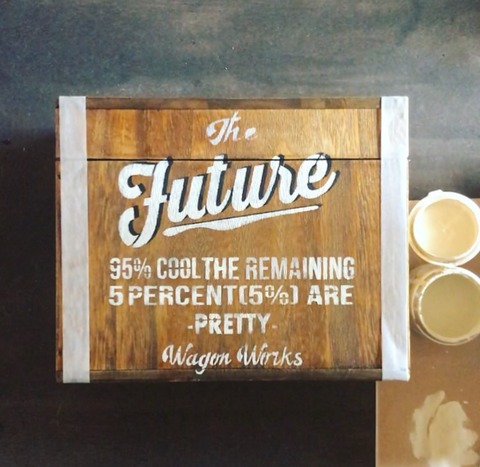 The
Future
95% COOL THE REMAINING
5 PERCENT (5%) ARE
-PRETTY-
Wagon Works